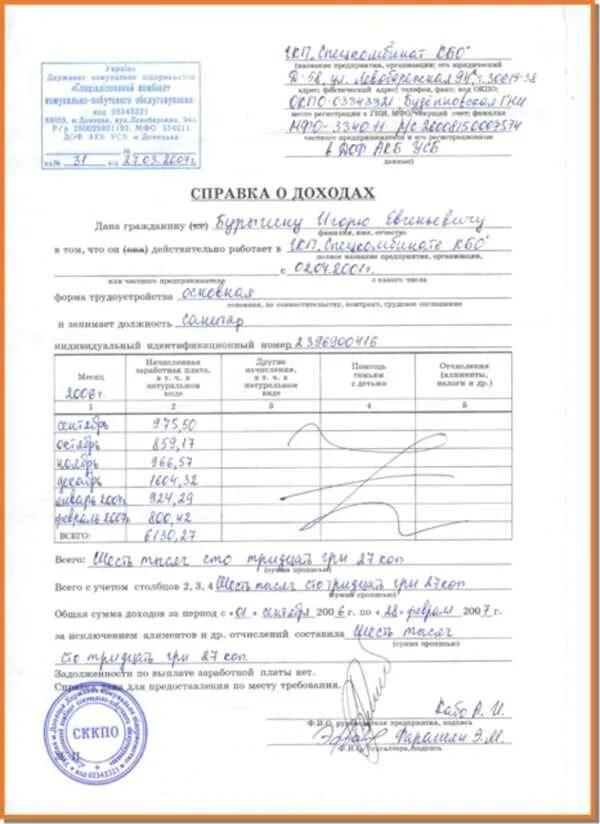 Україна
Державне комунальне підприємство
«Спеціалізований комбінат
комунально-побутового обслуговування»
код 03343321
№ 31 від 27.03.2007
ГКП „Спецкомбинат КБО"
(название предприятия, организации; его юридический
Д-58, ул. Левобережская 94
адрес; фактический адрес; телефон, факс; код ОКПО;
ОКПО-03343321 Будённовская ГНИ
место регистрации в ГНИ, МФО, текущий счет; фамилия
МФО-334011 Р/С 26008150007574
частного предпринимателя и его регистрационные
в ДОФ АКБ УСБ
данные)
СПРАВКА О ДОХОДАХ
Дана гражданину (ке) Игорю Евгеньевичу
фамилия, имя, отчество
в том, что он (она) действительно работает в ГКП „Спецкомбинате КБО"
полное название предприятия, организации,
с 02.04.2001г.
или частного предпринимателя с какого числа
форма трудоустройства основная
основная, по совместительству, контракт, трудовое соглашение
и занимает должность санитар
индивидуальный идентификационный номер 2396900416
Месяц Начисленная заработная плата, в т. ч. в натуральном виде Другие начисления, в т. ч. в натуральном виде Помощь семьям с детьми Отчисления (алименты, налоги и др.)
2006г.
1 2 3 4 5
сентябрь 975,50
октябрь 859,17
ноябрь 966,57
декабрь 1604,32
январь 2007г 924,29
февраль 2007г 800,42
ВСЕГО: 6130,27
Всего: Шесть тысяч сто тридцать грн 27 коп
(сумма прописью)
Всего с учетом столбцов 2, 3, 4 Шесть тысяч сто тридцать грн 27 коп
(сумма прописью)
Общая сумма доходов за период с «01» сентября 2006 г. по «28» февраль 2007 г.
за исключением алиментов и др. отчислений составила Шесть тысяч
(сумма прописью)
сто тридцать грн 27 коп
Задолженности по выплате заработной платы нет.
Справка дана для предоставления по месту требования.
Кабо А. И.
Ф.И.О. руководителя предприятия, подпись
Э.М.
Ф.И.О. бухгалтера, подпись
СККПО
код 03343321